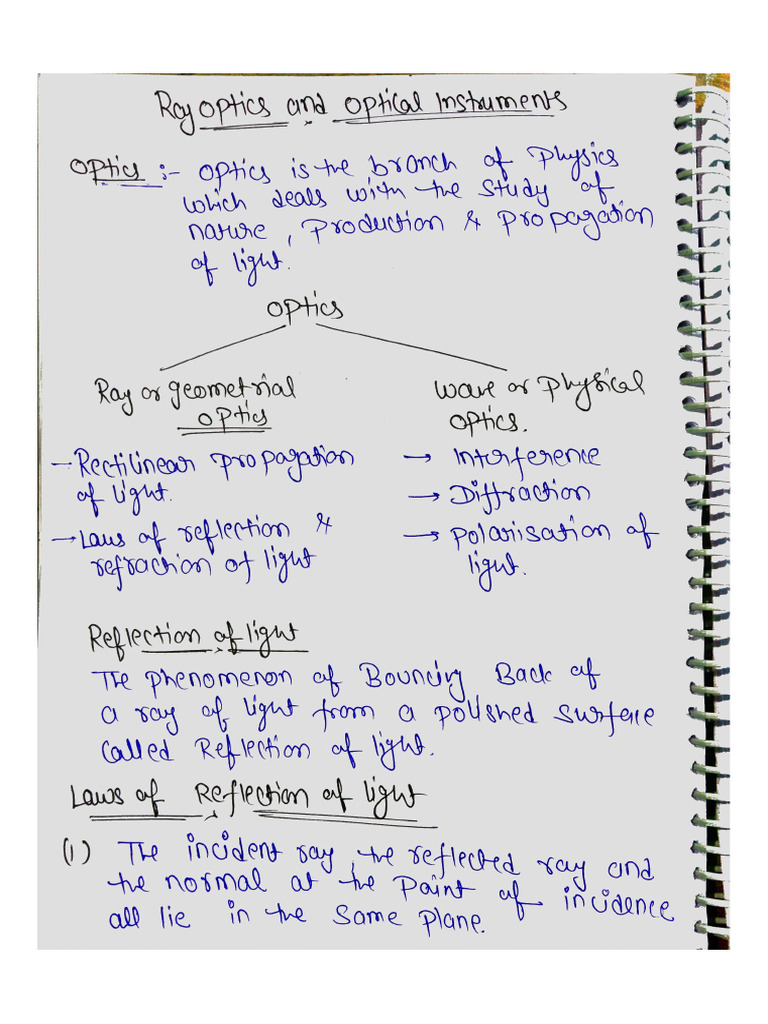 Ray optics and optical Instruments
Optics :- optics is the branch of Physics
which deals with the study of
nature, Production & Propagation
of light.
Optics
Ray or geometrial
optics
wave or Physical
optics.
→ Rectilinear Propagation
of light.
→ Laws of reflection &
refraction of light
→ Interference
→ Diffraction
→ Polarisation of
light.
Reflection of light
The Phenomenon of Bouncing Back of
a ray of light from a polished surface
called Reflection of light.
Laws of Reflection of light
(1) The incident ray, the reflected ray and
the normal at the Point of incidence
all lie in the same plane.